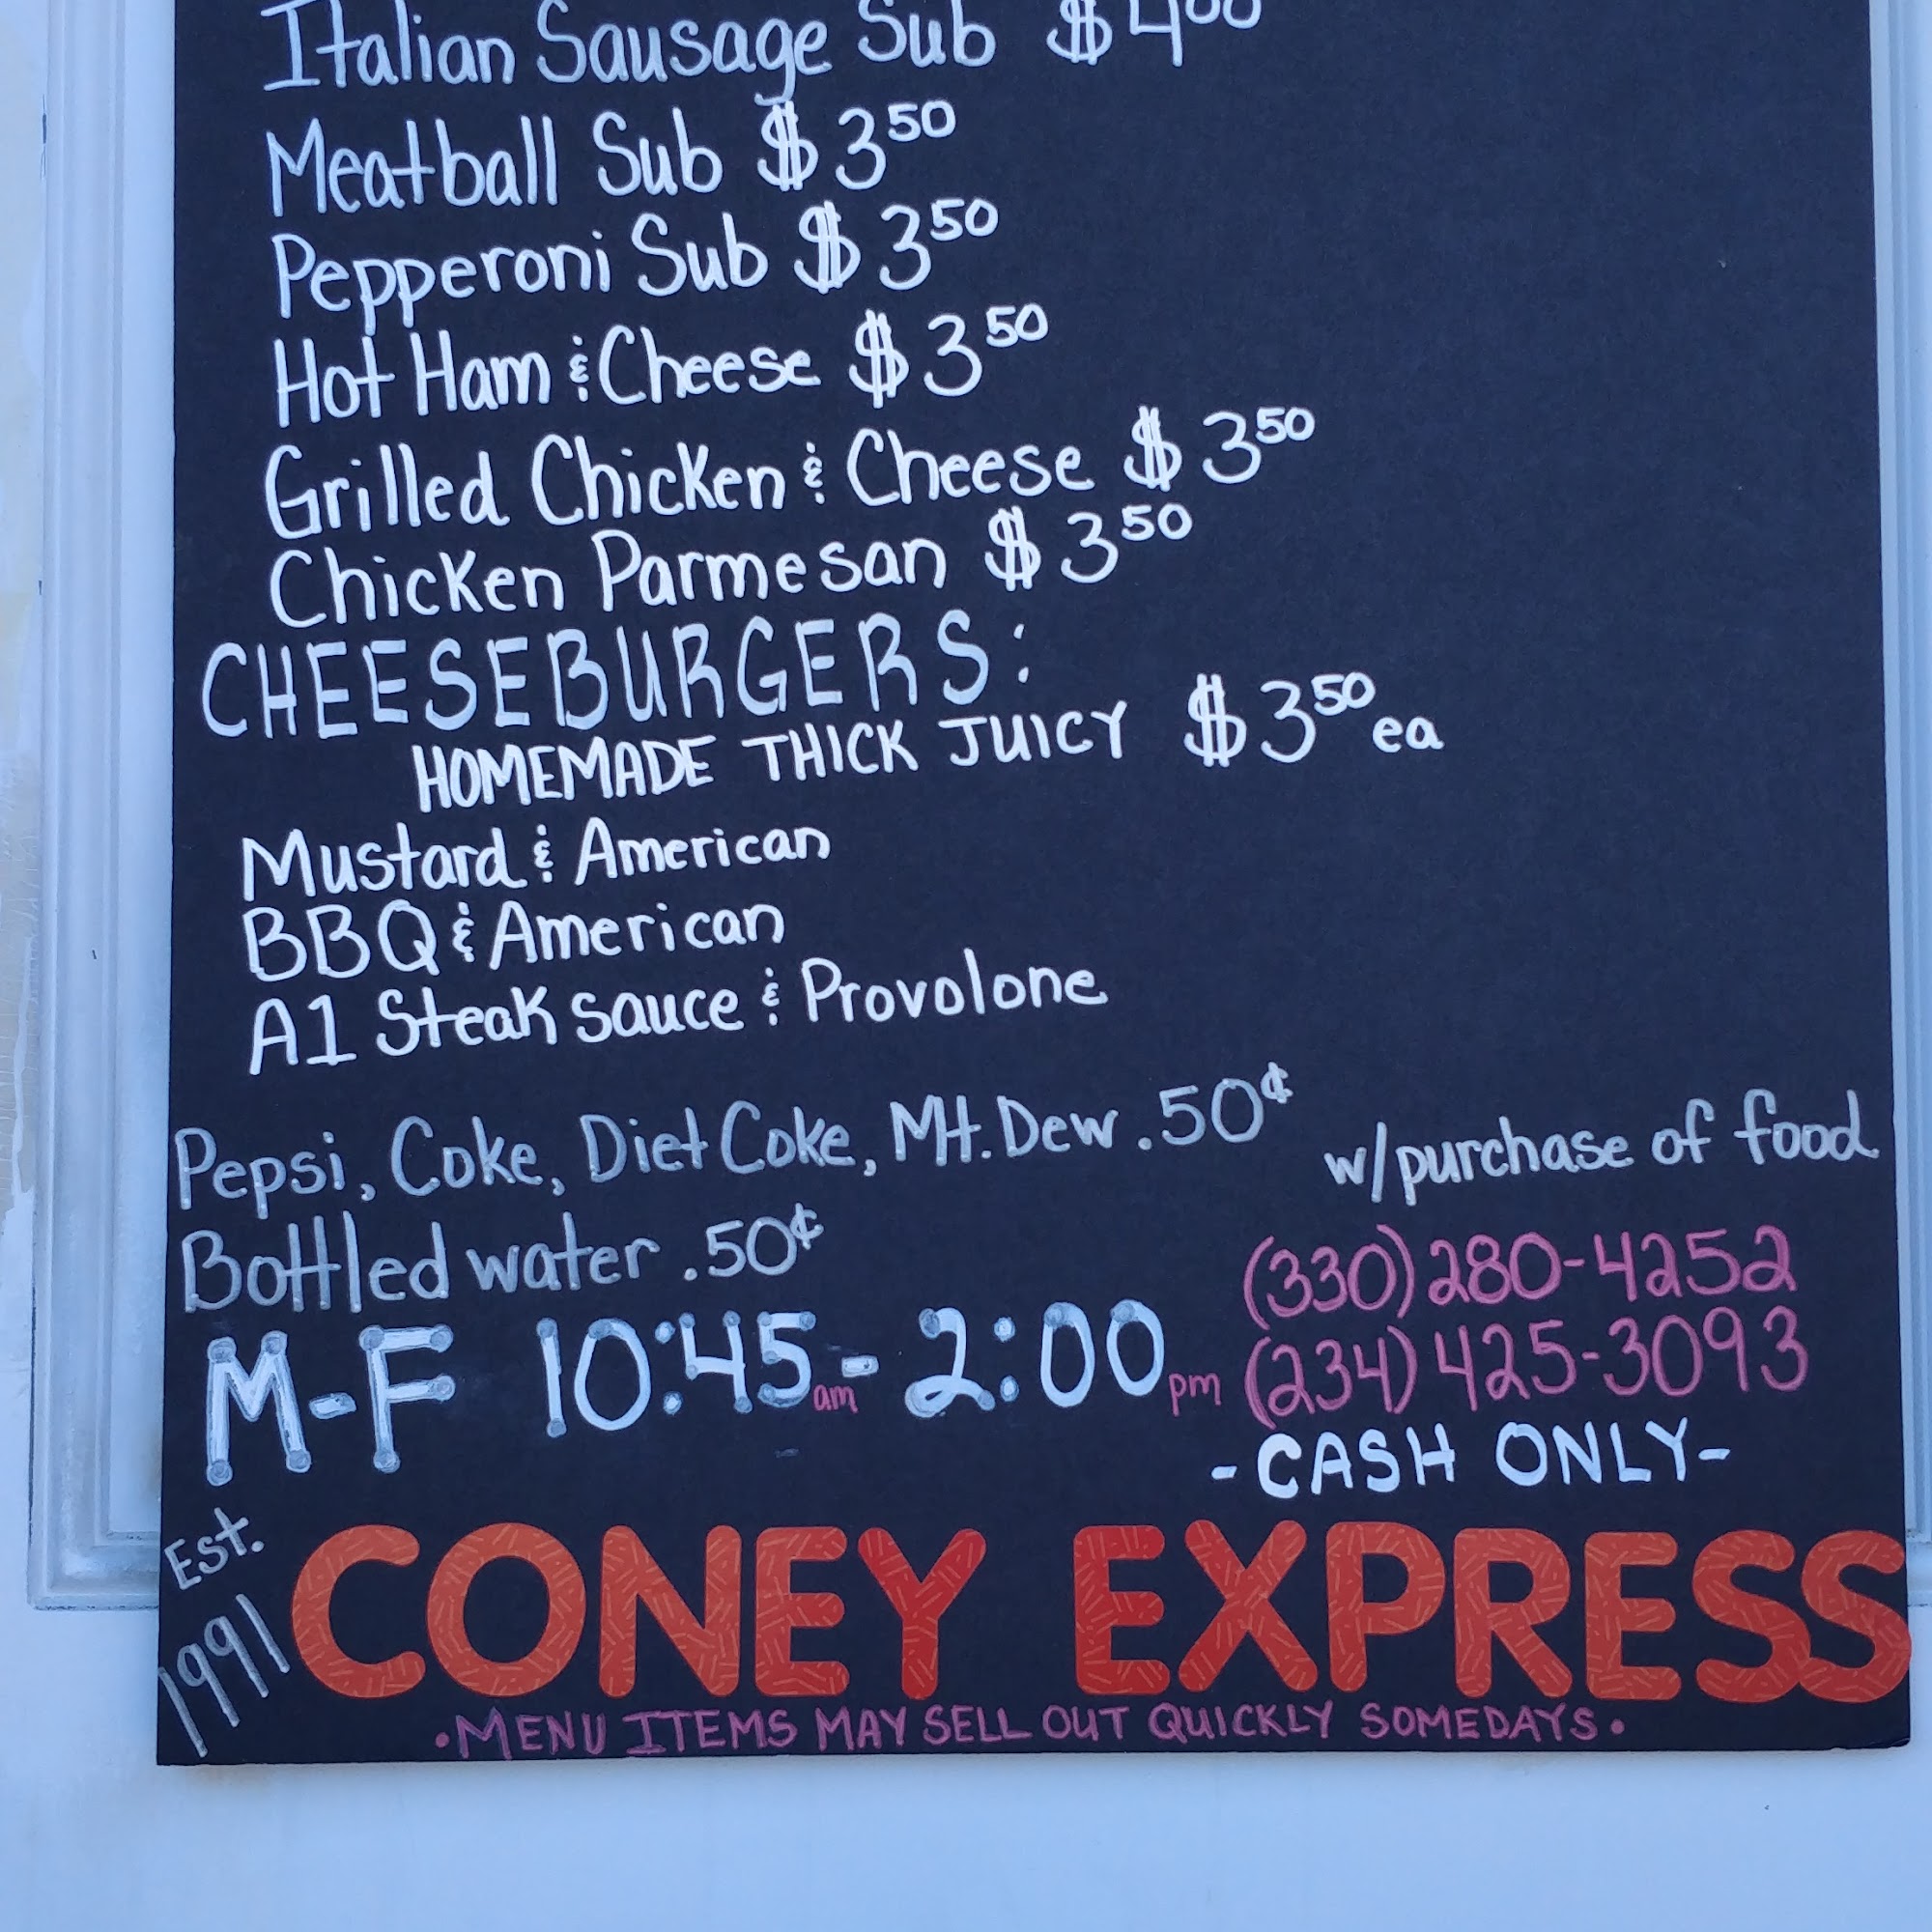 Italian Sausage Sub $4⁰⁰
Meatball Sub $3⁵⁰
Pepperoni Sub $3⁵⁰
Hot Ham & Cheese $3⁵⁰
Grilled Chicken & Cheese $3⁵⁰
Chicken Parmesan $3⁵⁰
CHEESEBURGERS:
HOMEMADE THICK JUICY $3⁵⁰ ea
Mustard & American
BBQ & American
A1 Steak sauce & Provolone
Pepsi, Coke, Diet Coke, Mt. Dew .50¢ w/purchase of food
Bottled water .50¢
(330) 280-4252
M-F 10:45am - 2:00pm
(234) 425-3093
-CASH ONLY-
Est. 1991
CONEY EXPRESS
•MENU ITEMS MAY SELL OUT QUICKLY SOMEDAYS•